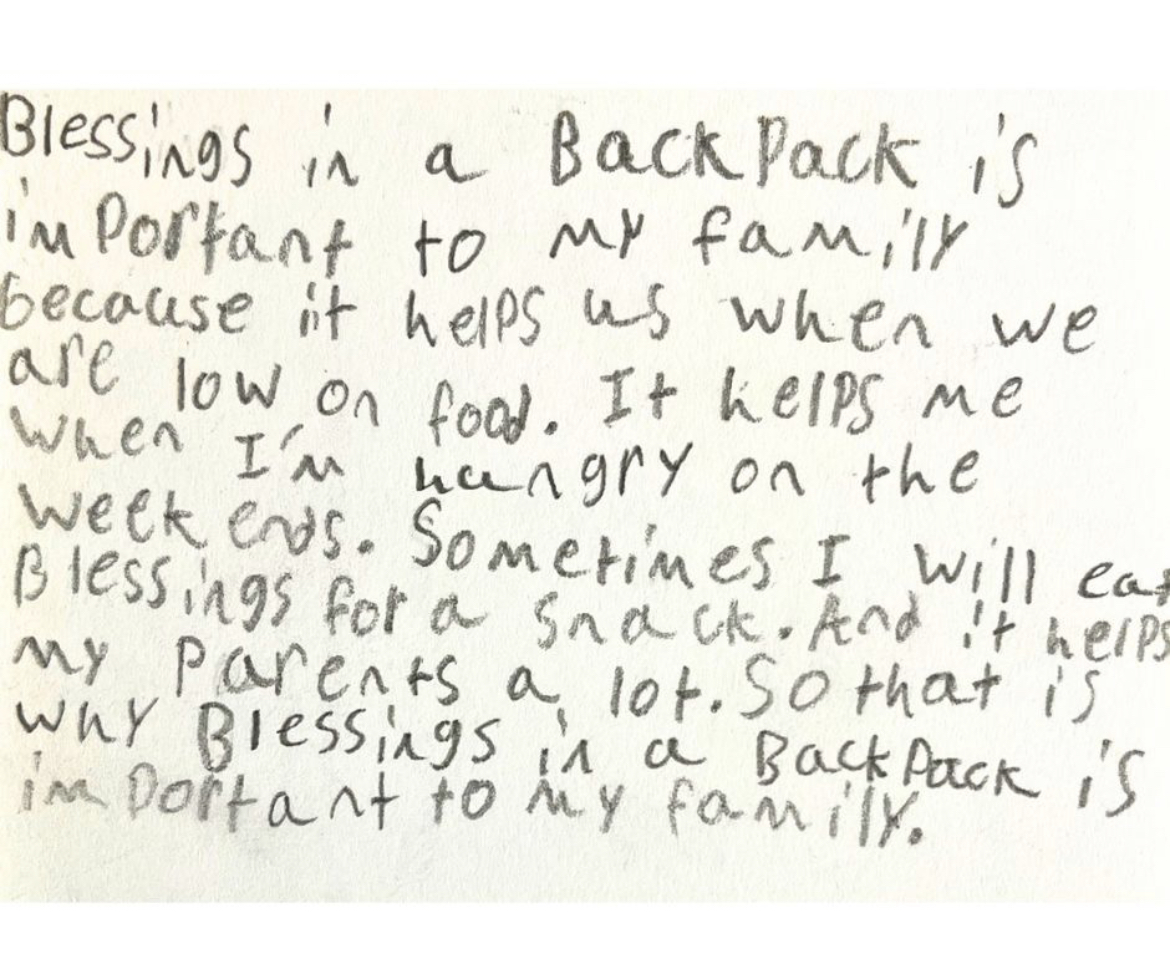 Blessings in a BackPack is
imPortant to my family
because it helps us when we
are low on food. It helps me
when I'm hungry on the
week ends. Sometimes I will eat
Blessings for a snack. And it helps
my Parents a lot. So that is
why Blessings in a BackPack is
imPortant to my family.